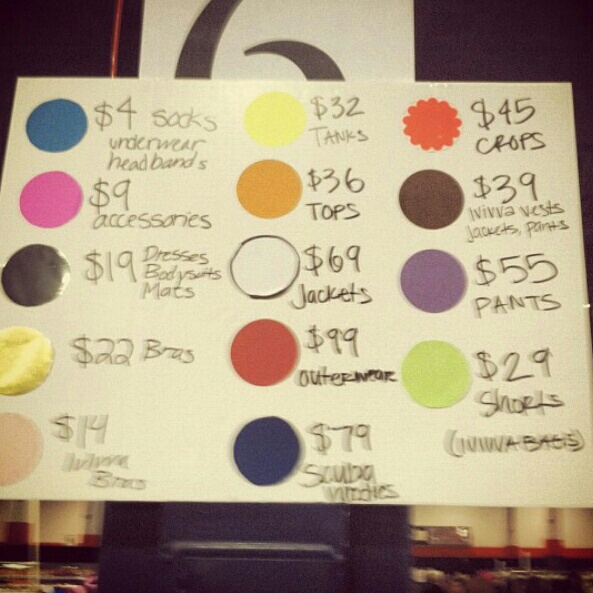 6
$4 socks
underwear
headbands
$9
accessories
$19 Dresses
Bodysuits
Mats
$22 Bras
$14
Ivivva
Bras
$32
TANKS
$36
TOPS
$69
Jackets
$99
outerwear
$79
Scuba
hoodies
$45
CROPS
$39
ivivva vests
jackets, pants
$55
PANTS
$29
Shorts
(IVIVVA BAGS)